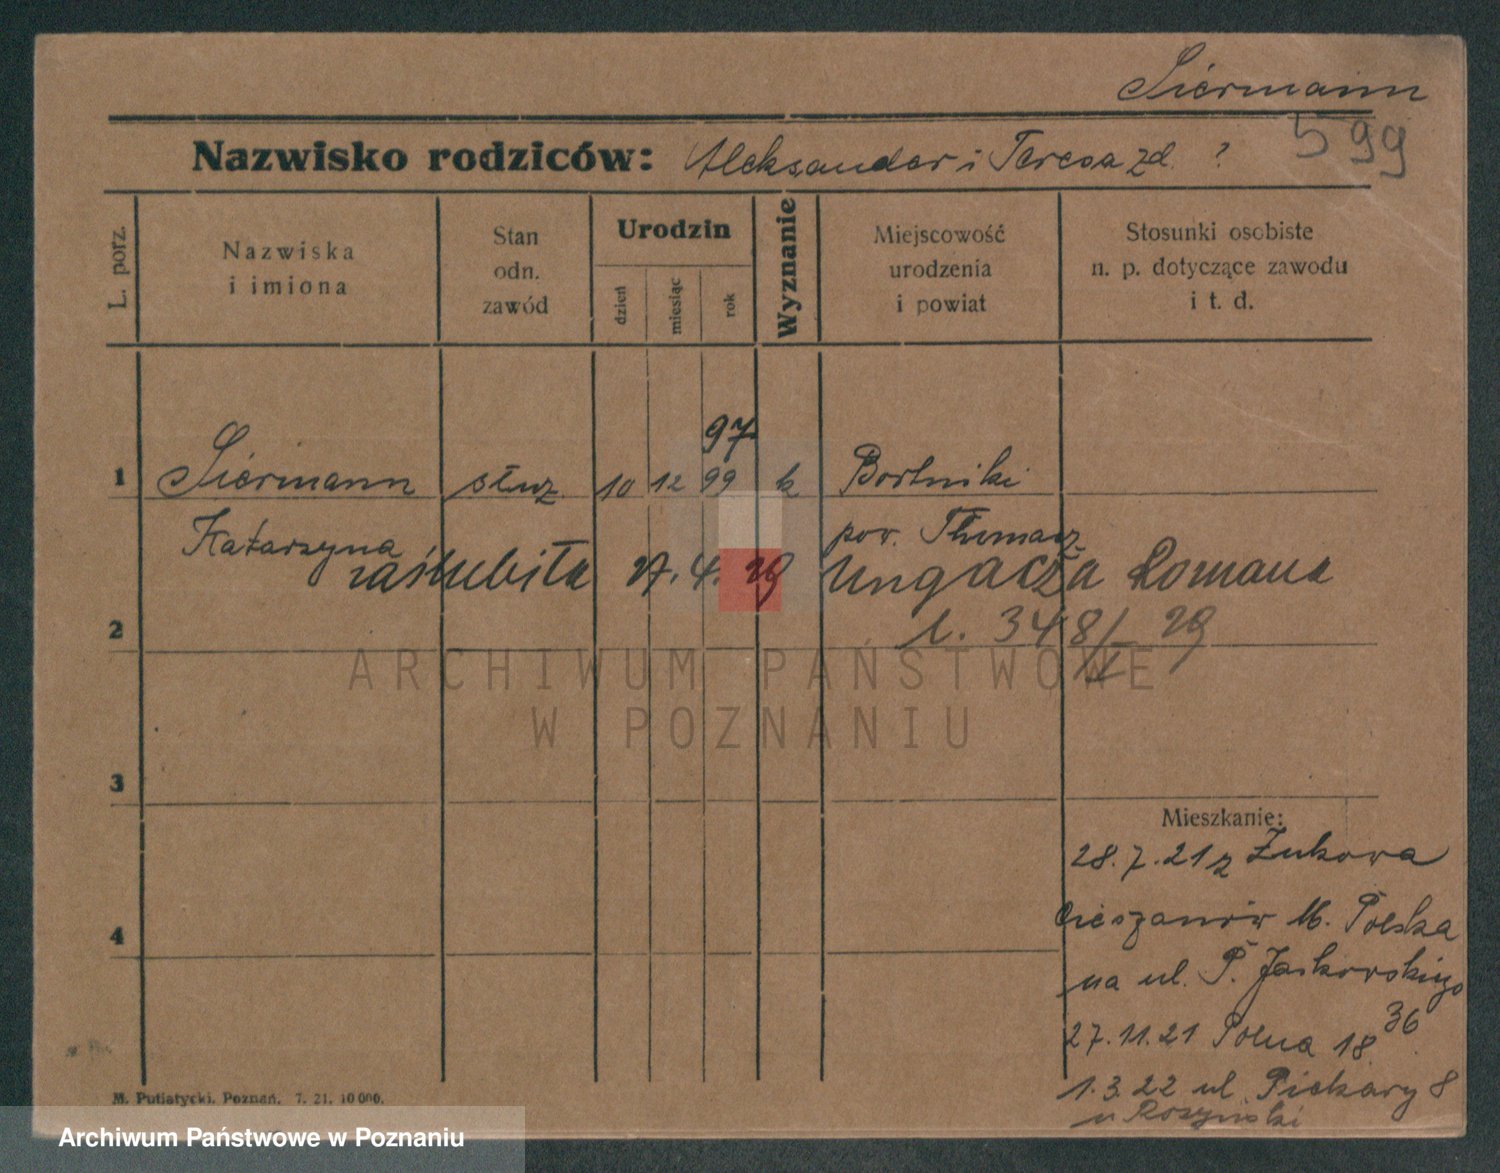 Siermann
599
Nazwisko rodziców: Aleksander i Teresa zd. ?
L. porz.
Nazwiska
i imiona
Stan
odn.
zawód
Urodzin
dzień
miesiąc
rok
Wyznanie
Miejscowość
urodzenia
i powiat
Stosunki osobiste
n. p. dotyczące zawodu
i t. d.
97
1 Siermann służ. 10 12 99 k Bortniki
Katarzyna pow. Tłumacz
zaślubiła 27. 4. 29 Ungacza Romana
2 l. 348/ 29
ARCHIWUM PAŃSTWOWE
W POZNANIU
3
Mieszkanie:
28.7.21 z Żukowa
4 Cieszanów M. Polska
na ul. P. Jaskowskiego
36
27.11.21 Polna 18
1.3.22 ul. Piekary 8
u Roszyński
M. Putiatycki. Poznań. 7. 21. 10 000.
Archiwum Państwowe w Poznaniu